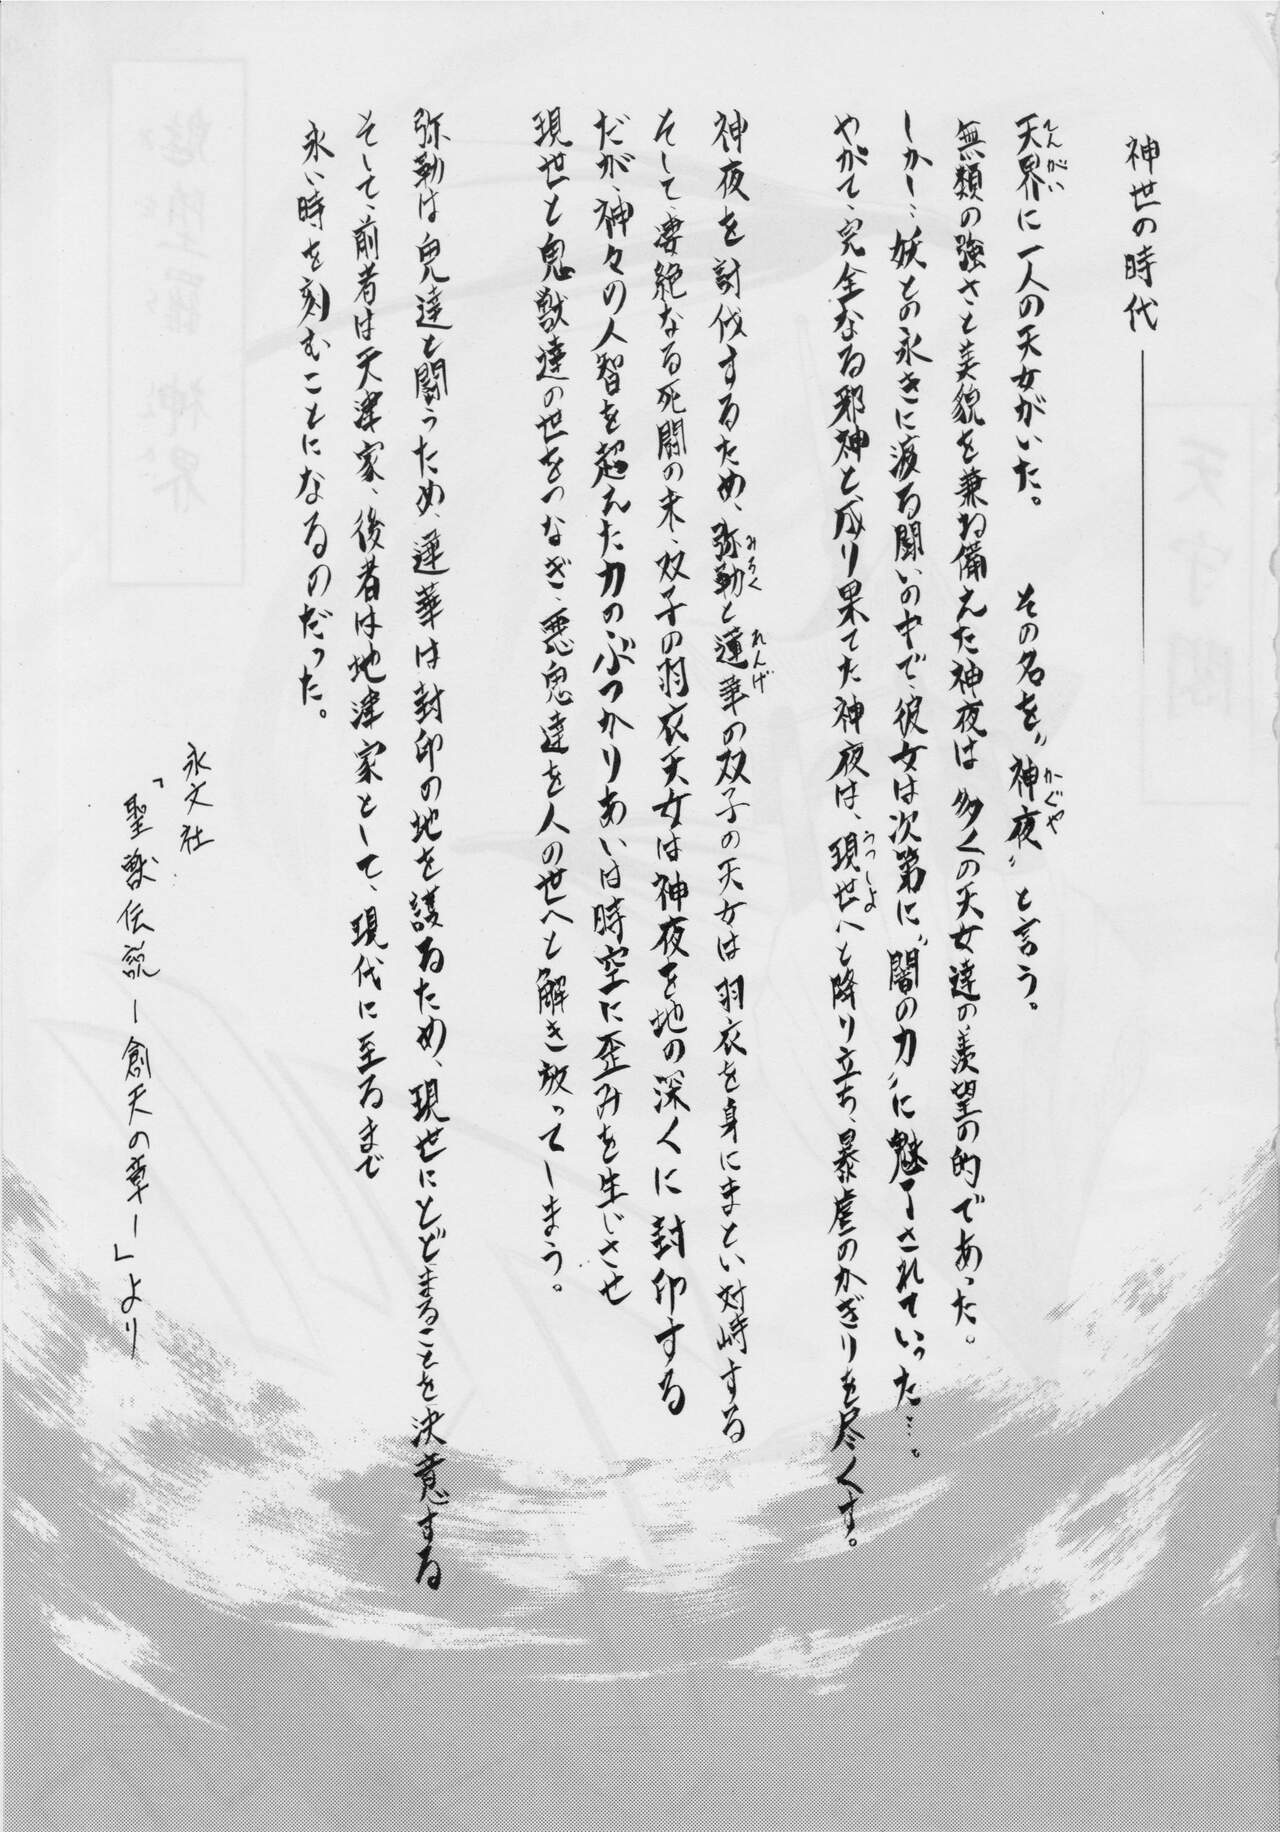 神世の時代――
天界に一人の天女がいた。　その名を〝神夜〟と言う。
てんがい
かぐや
無類の強さと美貌を兼ね備えた神夜は多くの天女達の羨望の的であった。
しかし…妖との永きに渡る闘いの中で、彼女は次第に〝闇の力〟に魅了されていった…。
やがて、完全なる邪神と成り果てた神夜は、現世へと降り立ち、暴虐のかぎりを尽くす。
うつしよ
神夜を討伐するため、弥勒と蓮華の双子の天女は羽衣を身にまとい対峙する
みろく
れんげ
そして、凄絶なる死闘の末、双子の羽衣天女は神夜を地の深くに封印する
だが、神々の人智を超えた力のぶつかりあいは時空に歪みを生じさせ
現世と鬼獣達の世をつなぎ、悪鬼達を人の世へと解き放ってしまう。
弥勒は鬼達と闘うため、蓮華は封印の地を護るため、現世にとどまることを決意する
そして、前者は天津家、後者は地津家として、現代に至るまで
永い時を刻むことになるのだった。
永文社
「聖獣伝説―創天の章―」より